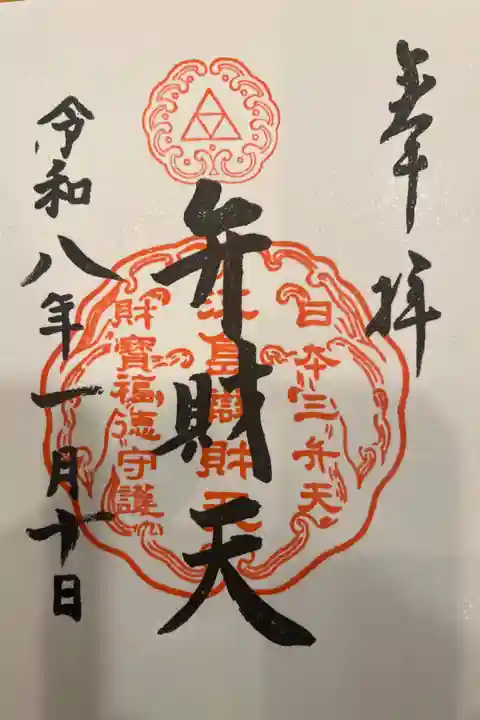 奉拝
日本三弁天
江島辨財天
弁財天
財寶福徳守護
令和八年一月十日